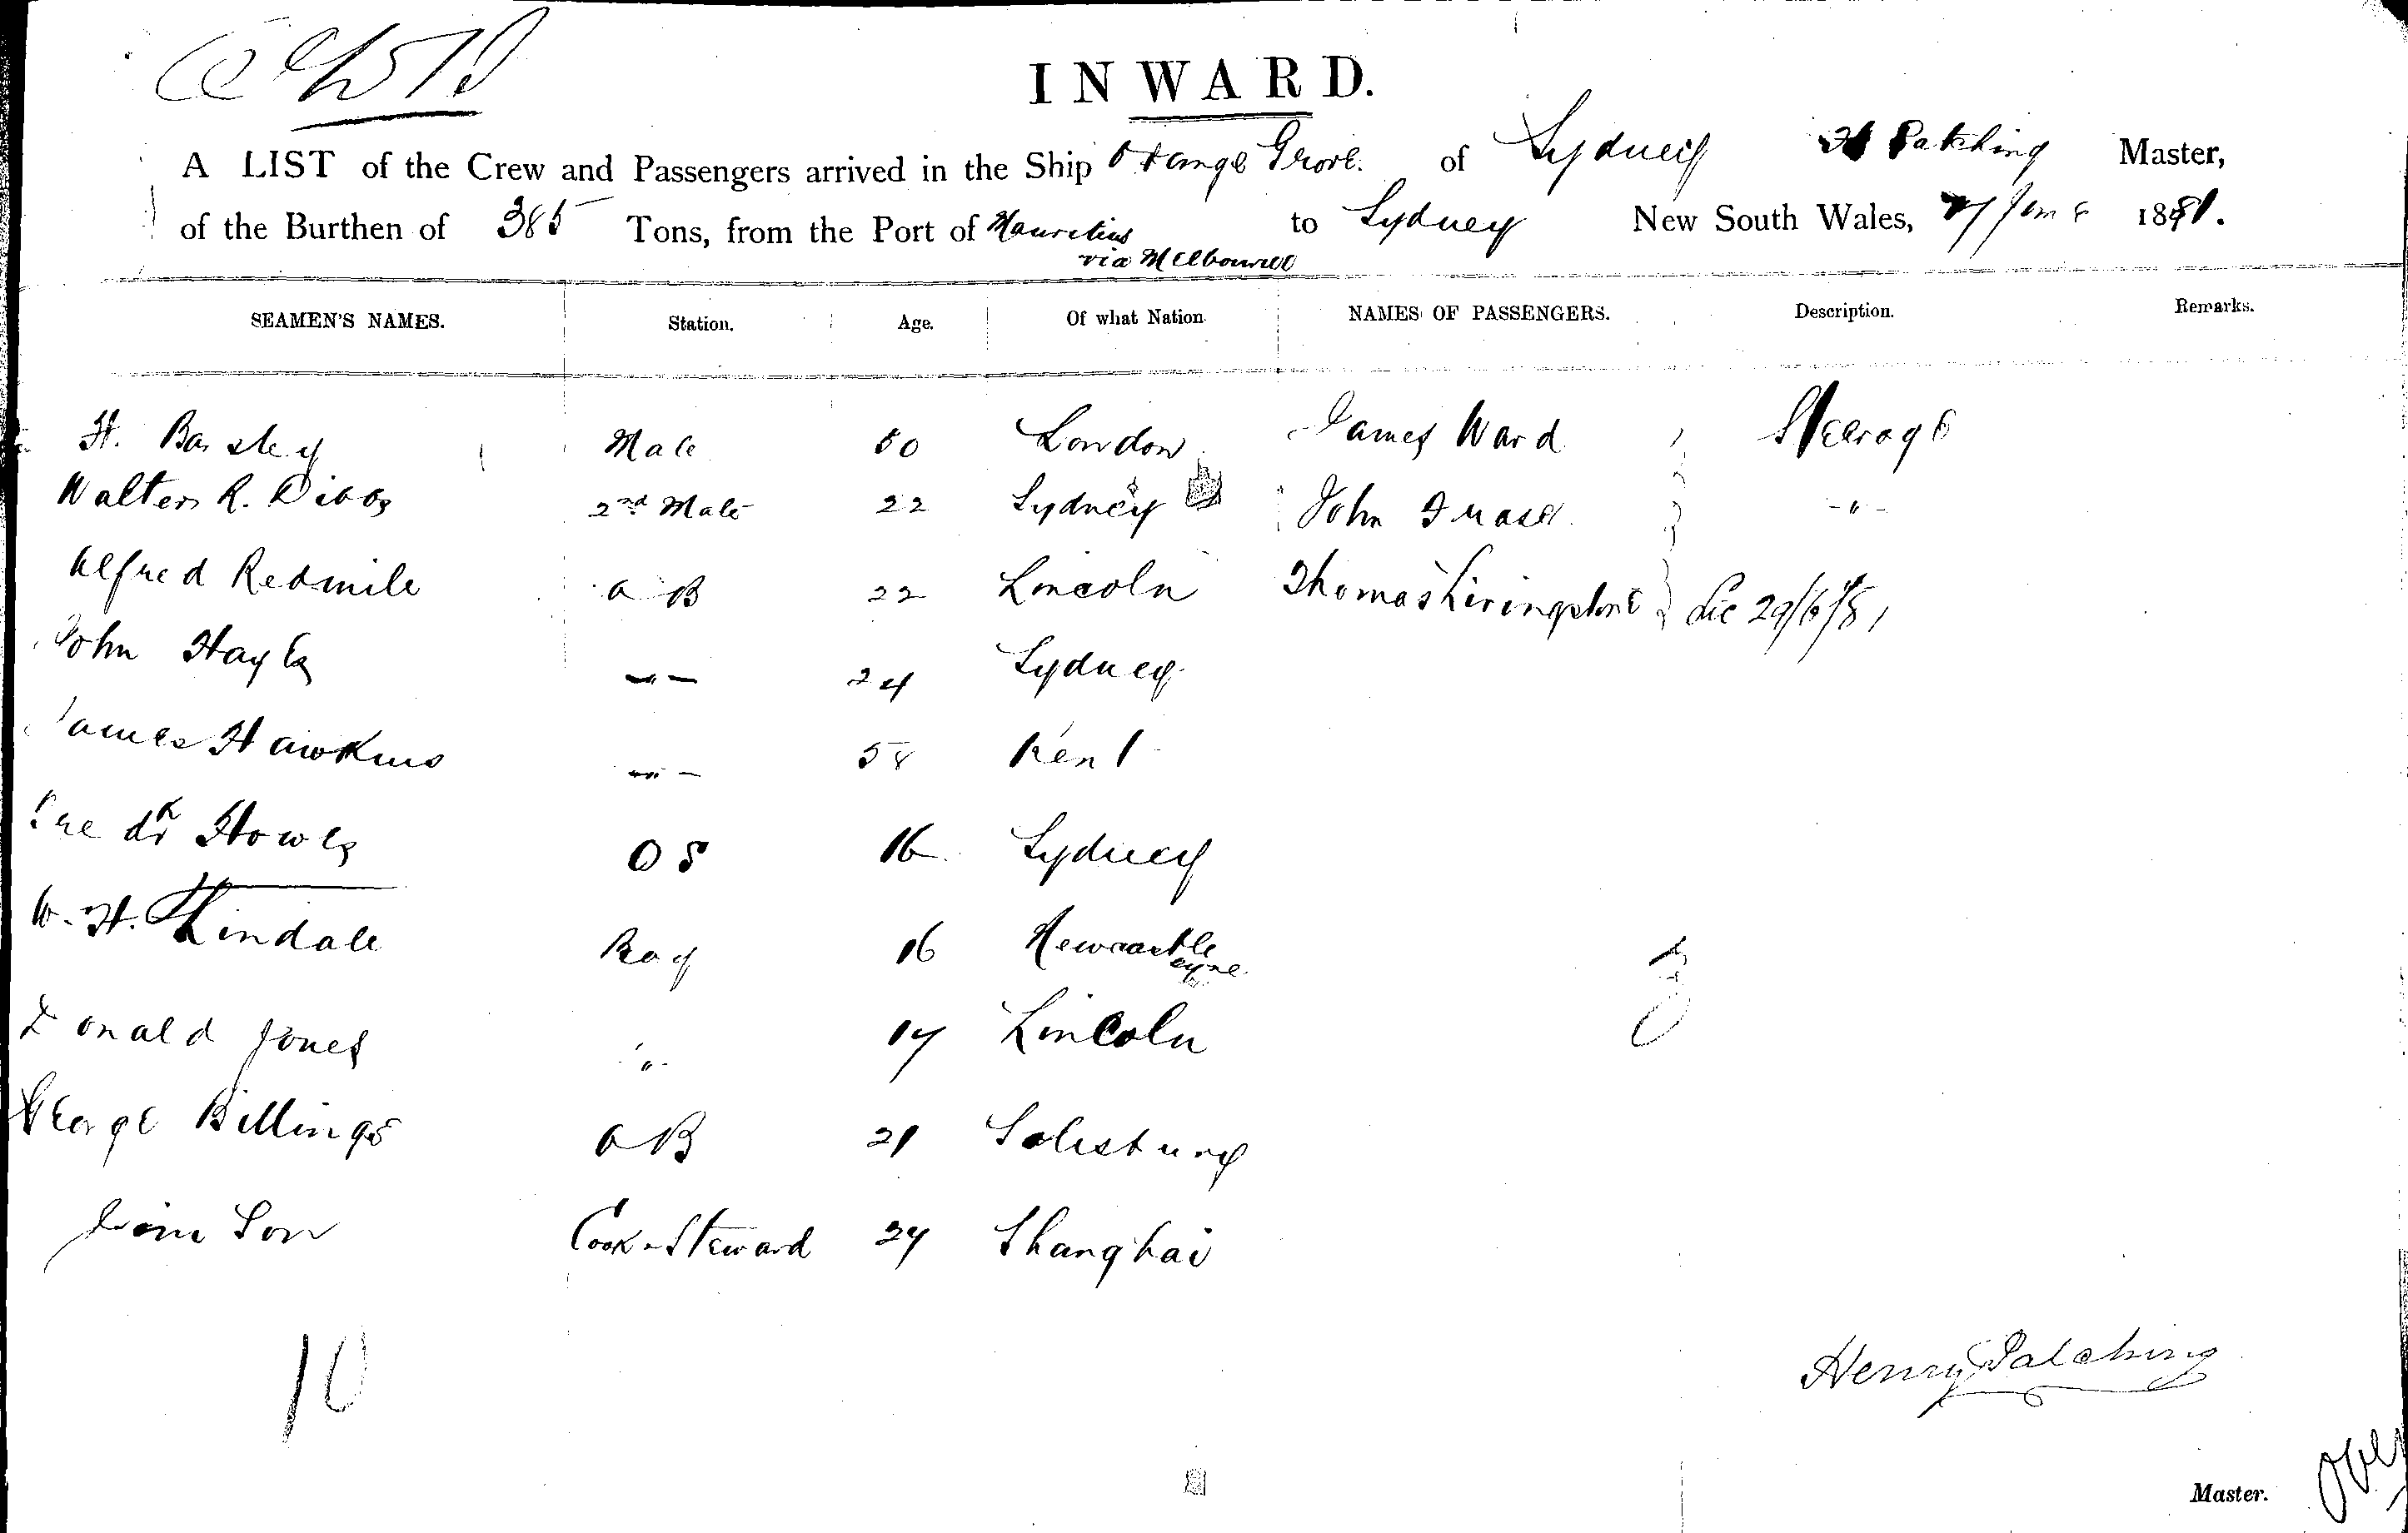 INWARD.
A LIST of the Crew and Passengers arrived in the Ship Orange Grove of Sydney H Patching Master,
of the Burthen of 385 Tons, from the Port of Mauritius via Melbourne to Sydney New South Wales, June 1881.
SEAMEN'S NAMES. Station. Age. Of what Nation NAMES OF PASSENGERS. Description. Remarks.
H. Mate 50 London James Ward Steerage
Walter R. Dibbs 2nd Mate 22 Sydney John Fraser - " -
Alfred Redmile A B 22 Lincoln Thomas Livingstone 29/6/81
John Hayes - " - 24 Sydney
James Hawkins - " - 58 Kent
Fredk Howes O S 16 Sydney
W. H. Boy 16 Newcastle Tyne
Donald Jones " 17 Lincoln
George Billings A B 21 Salisbury
Cook & Steward 27 Shanghai
10
Henry Patching
Master.
Over